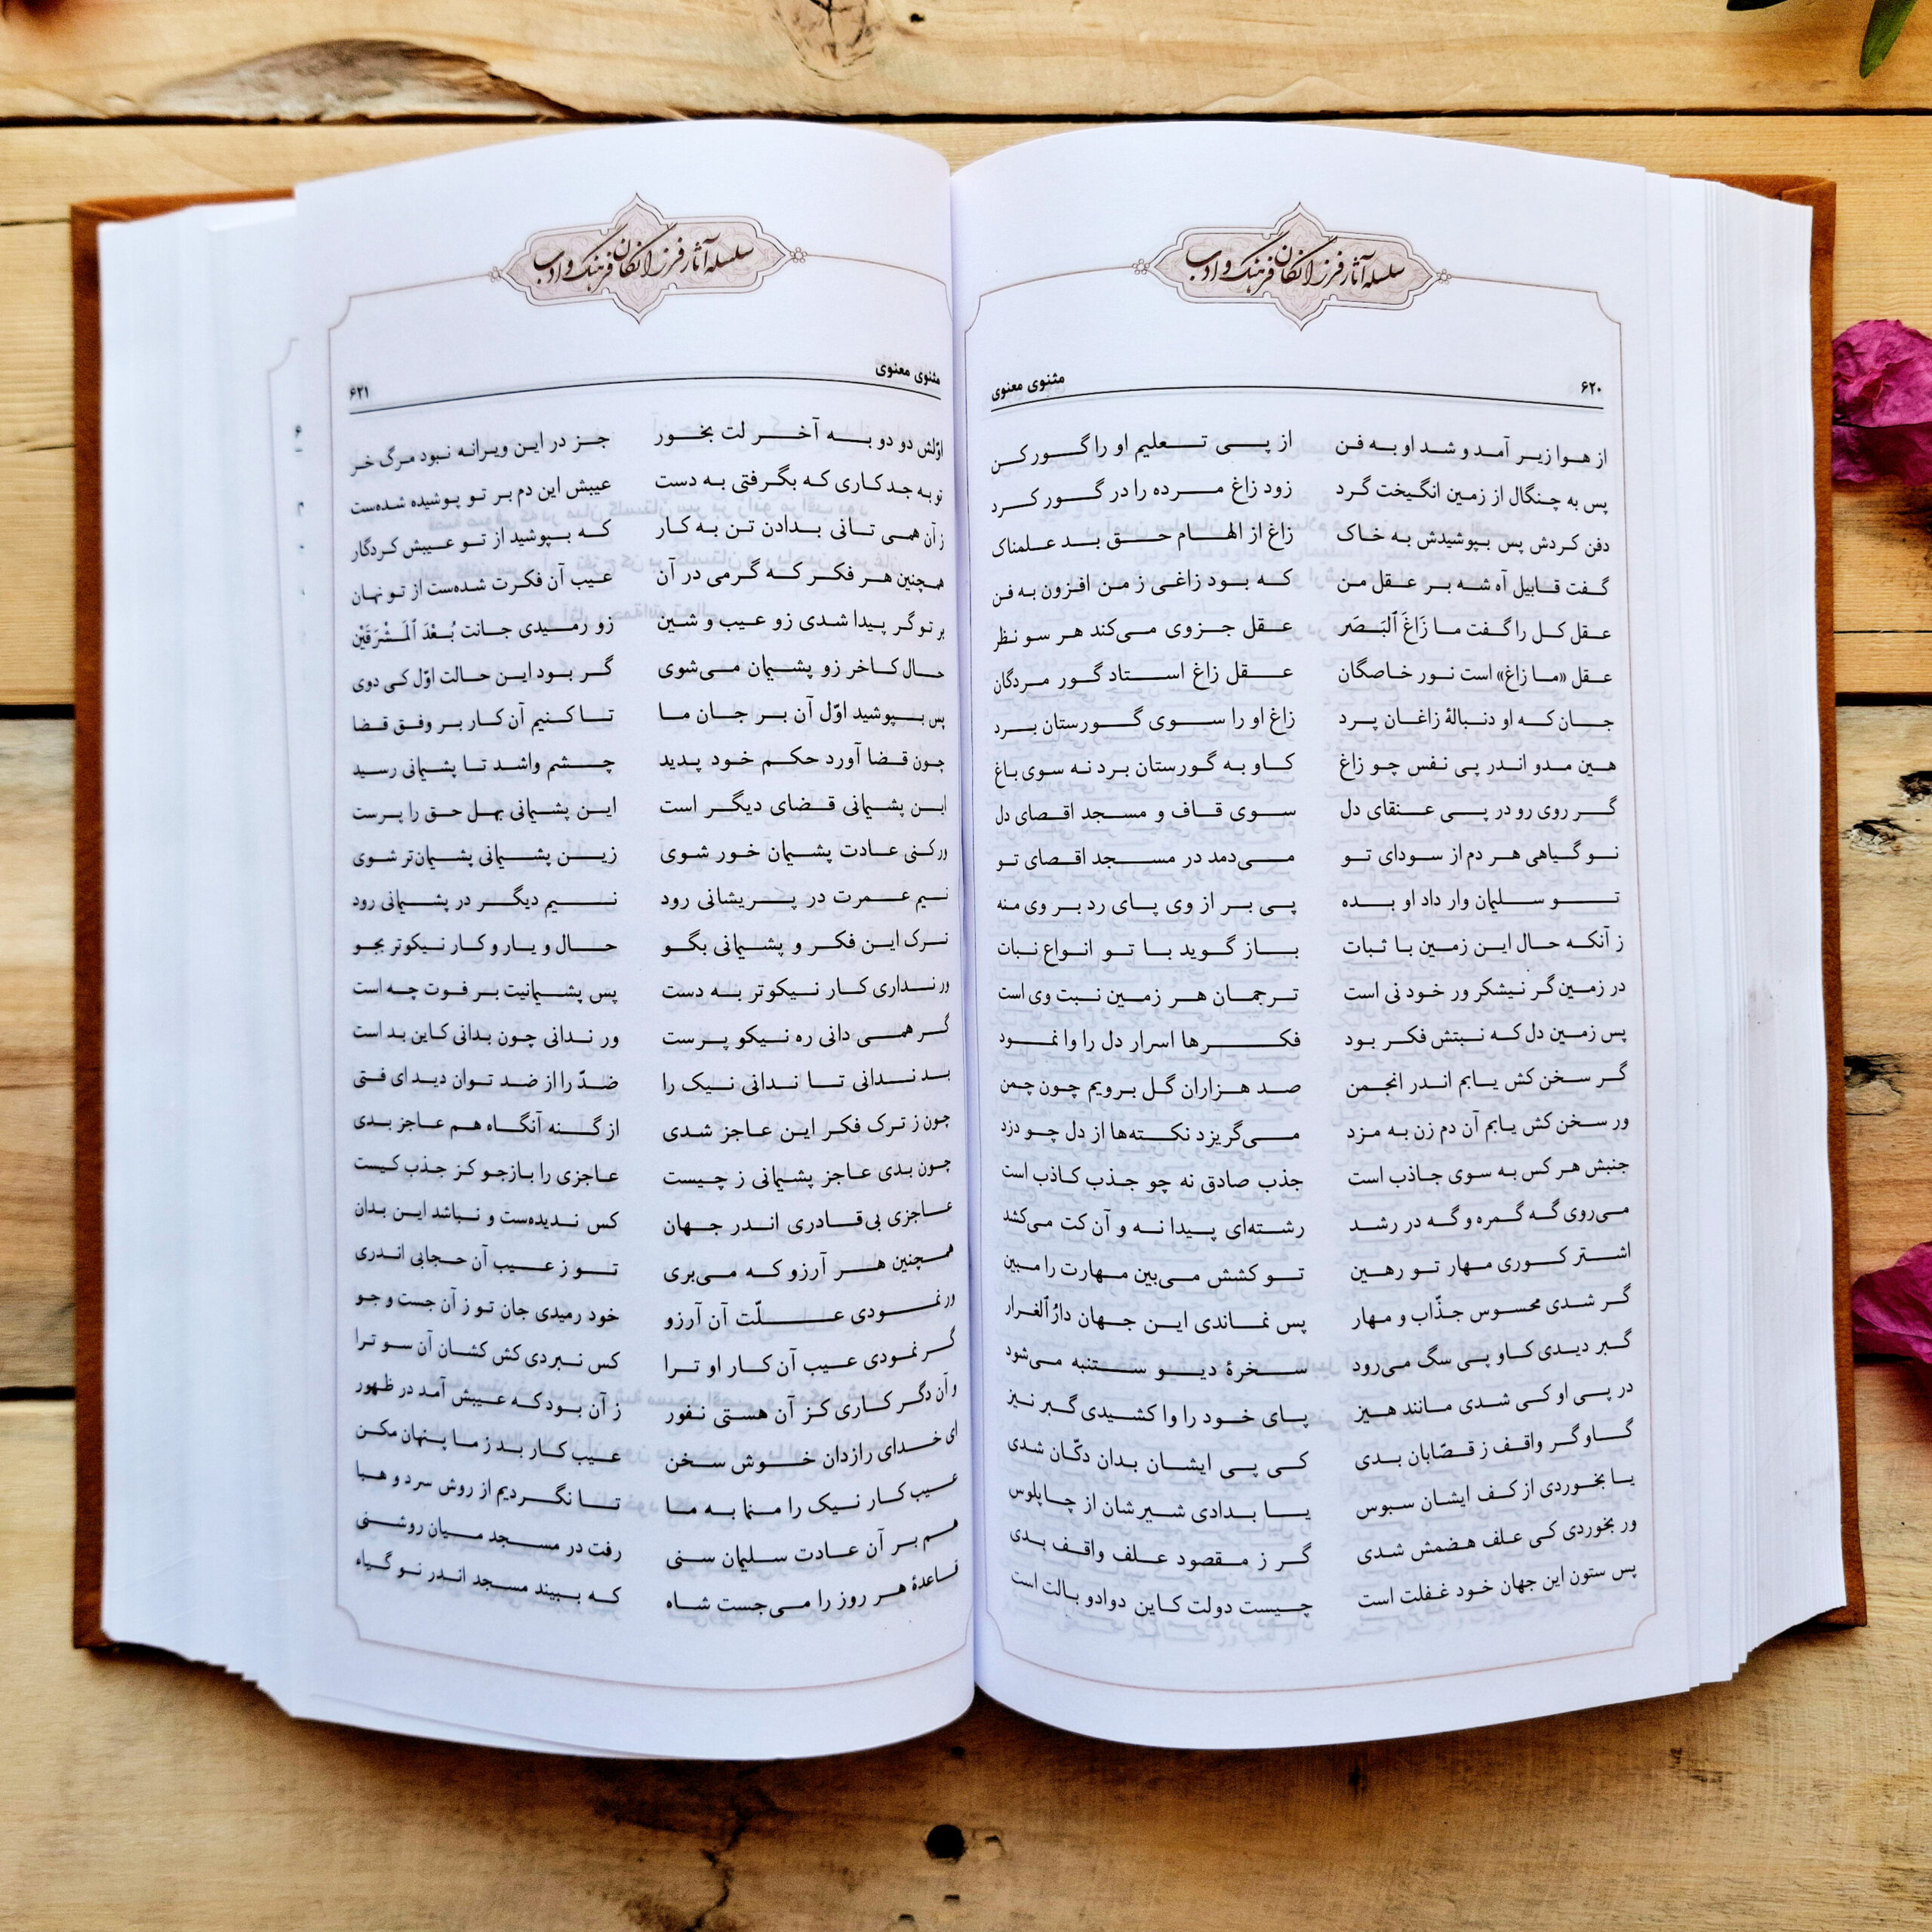 سلسله آثار فرزانگان فرهنگ و ادب
۶۲۰ مثنوی معنوی
از هوا زیر آمد و شد او به فن از پی تعلیم او را گورکن
پس به چنگال از زمین انگیخت گرد زود زاغ مرده را در گور کرد
دفن کردش پس بپوشیدش به خاک زاغ از الهام حق بد علمناک
گفت قابیل آه شه بر عقل من که بود زاغی ز من افزون به فن
عقل کل را گفت ما زَاغَ ٱلبَصَر عقل جزوی می‌کند هر سو نظر
عقل «ما زاغ» است نور خاصگان عقل زاغ استاد گور مردگان
جان که او دنبالهٔ زاغان پرد زاغ او را سوی گورستان برد
هین مدو اندر پی نفس چو زاغ کاو به گورستان برد نه سوی باغ
گر روی رو در پی عنقای دل سوی قاف و مسجد اقصای دل
نو گیاهی هر دم از سودای تو می‌دمد در مسجد اقصای تو
تو سلیمان وار داد او بده پی بر از وی پای رد بر وی منه
ز آنکه حال این زمین با ثبات باز گوید با تو انواع نبات
در زمین گر نیشکر ور خود نی است ترجمان هر زمین نبت وی است
پس زمین دل که نبتش فکر بود فکرها اسرار دل را وا نمود
گر سخن کش یابم اندر انجمن صد هزاران گل برویم چون چمن
ور سخن کش یابم آن دم زن به مزد می‌گریزد نکته‌ها از دل چو دزد
جنبش هر کس به سوی جاذب است جذب صادق نه چو جذب کاذب است
می‌روی گه گمره و گه در رشد رشته‌ای پیدا نه و آن کت می‌کشد
اشتر کوری مهار تو رهین تو کشش می‌بین مهارت را مبین
گر شدی محسوس جذّاب و مهار پس نماندی این جهان دارُ ٱلغرار
گبر دیدی کاو پی سگ می‌رود سخرهٔ دیو ستنبه می‌شود
در پی او کی شدی مانند هیز پای خود را وا کشیدی گبر نیز
گاو گر واقف ز قصّابان بدی کی پی ایشان بدان دکّان شدی
یا بخوردی از کف ایشان سبوس یا بدادی شیرشان از چاپلوس
ور بخوردی کی علف هضمش شدی گر ز مقصود علف واقف بدی
پس ستون این جهان خود غفلت است چیست دولت کاین دوادو بالت است
سلسله آثار فرزانگان فرهنگ و ادب
مثنوی معنوی ۶۲۱
اوّلش دو دو به آخر لت بخور جز در این ویرانه نبود مرگ خر
تو به جد کاری که بگرفتی به دست عیبش این دم بر تو پوشیده شده‌ست
ز آن همی تانی بدادن تن به کار که بپوشید از تو عیبش کردگار
همچنین هر فکر که گرمی در آن عیب آن فکرت شده‌ست از تو نهان
بر تو گر پیدا شدی زو عیب و شین زو رمیدی جانت بُعْدَ ٱلْمَشْرَقَیْن
حال کاخر زو پشیمان می‌شوی گر بود این حالت اوّل کی دوی
پس بپوشید اوّل آن بر جان ما تا کنیم آن کار بر وفق قضا
چون قضا آورد حکم خود پدید چشم واشد تا پشیمانی رسید
این پشیمانی قضای دیگر است این پشیمانی بهل حق را پرست
ور کنی عادت پشیمان خور شوی زین پشیمانی پشیمان‌تر شوی
نیم عمرت در پریشانی رود نیم دیگر در پشیمانی رود
ترک این فکر و پشیمانی بگو حال و یار و کار نیکوتر بجو
ور نداری کار نیکوتر به دست پس پشیمانیت بر فوت چه است
گر همی دانی ره نیکو پرست ور ندانی چون بدانی کاین بد است
بد ندانی تا ندانی نیک را ضدّ را از ضد توان دید ای فتی
چون ز ترک فکر این عاجز شدی از گنه آنگاه هم عاجز بدی
چون بدی عاجز پشیمانی ز چیست عاجزی را بازجو کز جذب کیست
عاجزی بی‌قادری اندر جهان کس ندیده‌ست و نباشد این بدان
همچنین هر آرزو که می‌بری تو ز عیب آن حجابی اندری
ور نمودی علّت آن آرزو خود رمیدی جان تو ز آن جست و جو
گر نمودی عیب آن کار او ترا کس نبردی کش کشان آن سو ترا
و آن دگر کاری کز آن هستی نفور ز آن بود که عیبش آمد در ظهور
ای خدای رازدان خوش سخن عیب کار بد ز ما پنهان مکن
عیب کار نیک را منما به ما تا نگردیم از روش سرد و هبا
هم بر آن عادت سلیمان سنی رفت در مسجد میان روشنی
قاعدهٔ هر روز را می‌جست شاه که ببیند مسجد اندر نو گیاه